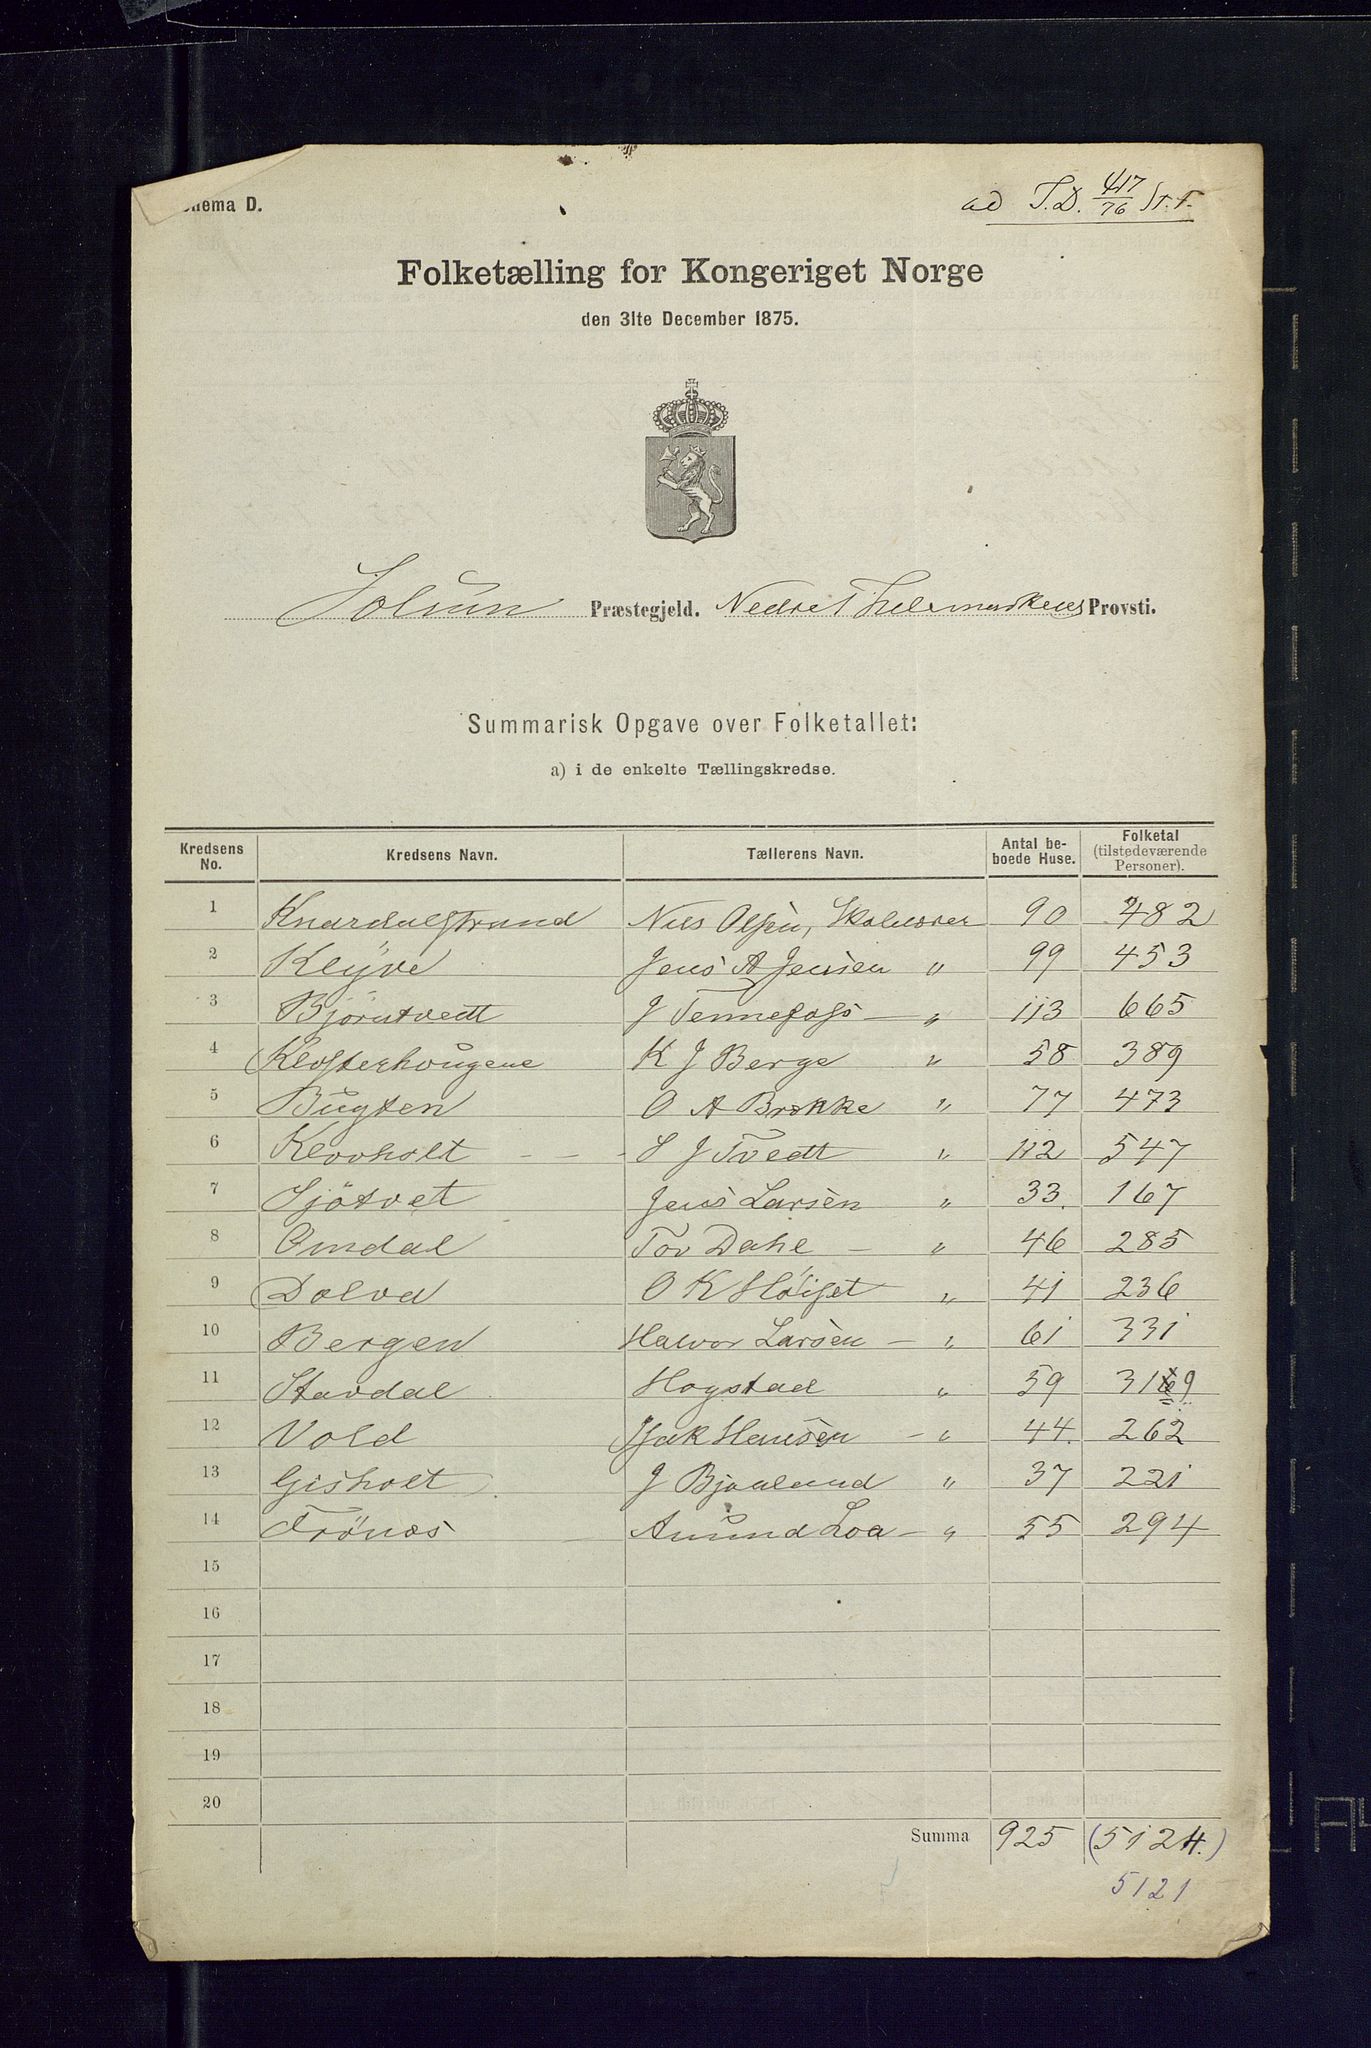 Schema D.
ad T.D. 417/76 St. T.
Folketælling for Kongeriget Norge
den 31te December 1875.
Solum Præstegjeld. Nedre Thelemarkens Provsti.
Summarisk Opgave over Folketallet:
a) i de enkelte Tællingskredse.
Kredsens No. Kredsens Navn. Tællerens Navn. Antal beboede Huse. Folketal (tilstedeværende Personer).
1 Knardalstrand Nils Olsen, Skolelærer 90 482
2 Klyve Jens A Jensen " 99 453
3 Bjørntvedt J Tennefoss — " 113 665
4 Klosterhougene K J Berge " 58 389
5 Bugten O A Brekke " 77 473
6 Klovholt - - - S J Tvedt " 112 547
7 Sjötvet Jens Larsen " 33. 167
8 Omdal Tov Dahl — " 46 285
9 Dolva O K Höiset " 41 236
10 Bergen Halvor Larsen — " 61 331
11 Stavdal Hogstad " 59 319
12 Vold Isak Hansen — " 44. 262
13 Gisholt J Bjaaland " 37 221
14 Trönes Amund Loa — " 55 294
15
16
17
18
19
20
Summa 925 (5124.)
5121